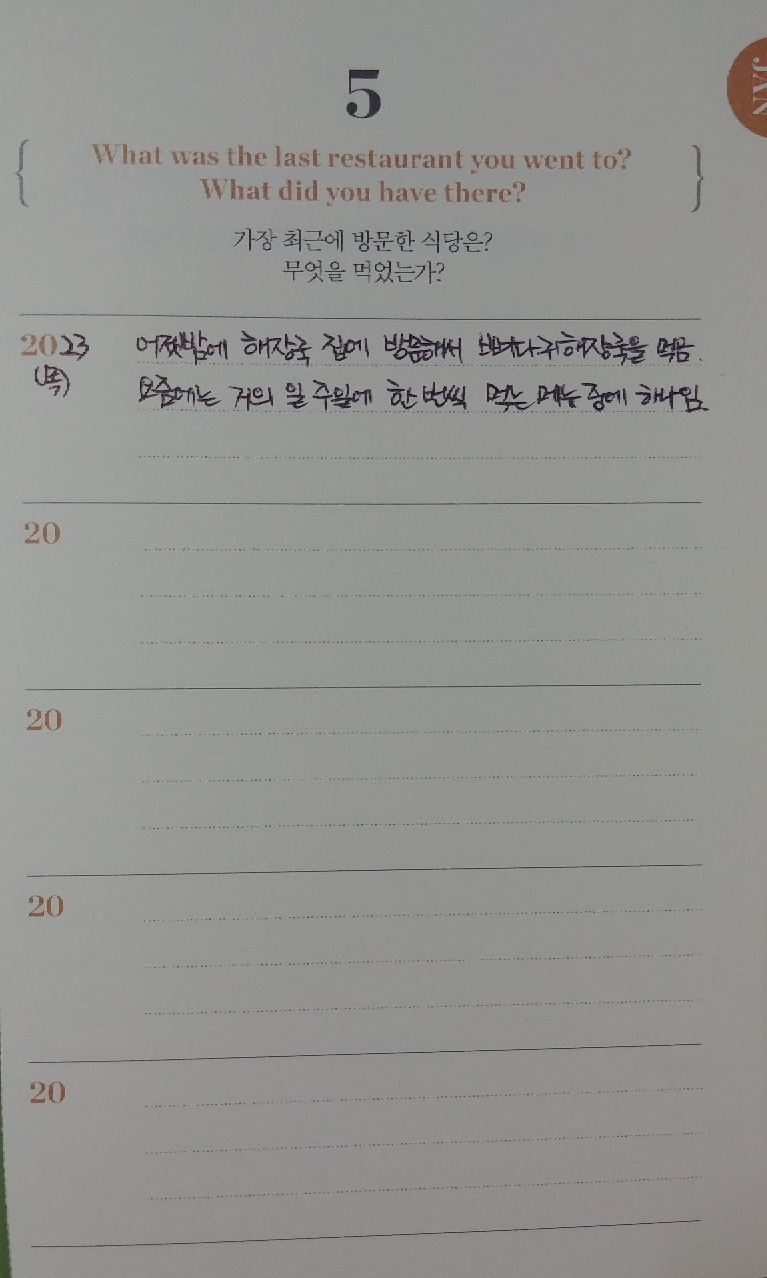 JAN
5
What was the last restaurant you went to?
What did you have there?
가장 최근에 방문한 식당은?
무엇을 먹었는가?
2023 어젯밤에 해장국 집에 방문해서 뼈다귀해장국을 먹음.
(목) 요즘에는 거의 일주일에 한 번씩 먹는 메뉴 중에 하나임.
20
20
20
20